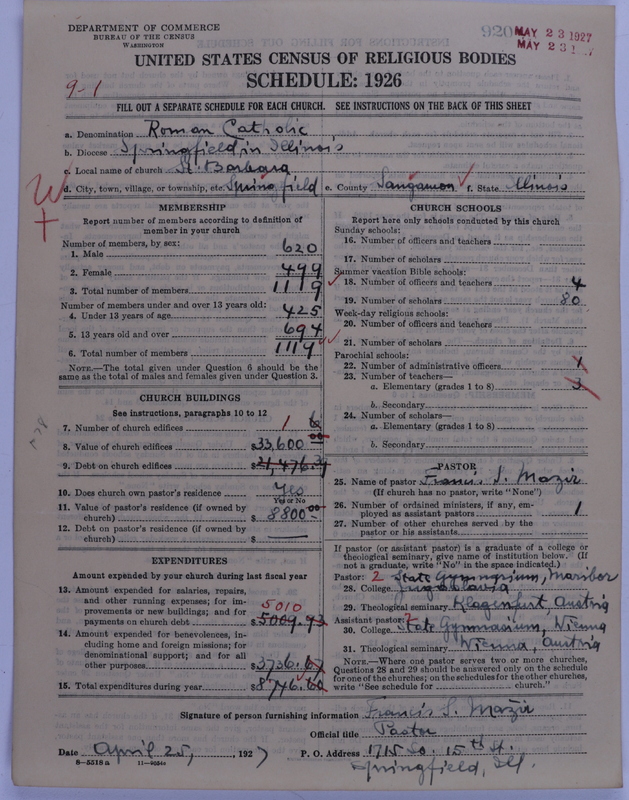 DEPARTMENT OF COMMERCE
BUREAU OF THE CENSUS
WASHINGTON
920
MAY 23 1927
MAY 23
UNITED STATES CENSUS OF RELIGIOUS BODIES
SCHEDULE: 1926
9-1
FILL OUT A SEPARATE SCHEDULE FOR EACH CHURCH. SEE INSTRUCTIONS ON THE BACK OF THIS SHEET
a. Denomination Roman Catholic
b. Diocese Springfield in Illinois
c. Local name of church St. Barbara
d. City, town, village, or township, etc. Springfield e. County Sangamon f. State Illinois
MEMBERSHIP
Report number of members according to definition of
member in your church
Number of members, by sex:
1. Male 620
2. Female 499
3. Total number of members 1119
Number of members under and over 13 years old:
4. Under 13 years of age 425
5. 13 years old and over 694
6. Total number of members 1119
NOTE.—The total given under Question 6 should be
same as the total of males and females given under Question 3.
CHURCH BUILDINGS
See instructions, paragraphs 10 to 12
7. Number of church edifices 1
8. Value of church edifices $33,600
9. Debt on church edifices
10. Does church own pastor's residence Yes
Yes or No
11. Value of pastor's residence (if owned by
church) $ 8800 00
12. Debt on pastor's residence (if owned by
church) $
EXPENDITURES
Amount expended by your church during last fiscal year
13. Amount expended for salaries, repairs,
and other running expenses; for im-
provements or new buildings; and for 5010
payments on church debt $5009.93
14. Amount expended for benevolences, in-
cluding home and foreign missions; for
denominational support; and for all
other purposes 3736.67
15. Total expenditures during year $8746.60
CHURCH SCHOOLS
Report here only schools conducted by this church
Sunday schools:
16. Number of officers and teachers
17. Number of scholars
Summer vacation Bible schools:
18. Number of officers and teachers 4
19. Number of scholars 80
Week-day religious schools:
20. Number of officers and teachers
21. Number of scholars
Parochial schools:
22. Number of administrative officers 1
23. Number of teachers—
a. Elementary (grades 1 to 8) 3
b. Secondary
24. Number of scholars—
a. Elementary (grades 1 to 8)
b. Secondary
PASTOR
25. Name of pastor Francis S. Mazir
(If church has no pastor, write "None")
26. Number of ordained ministers, if any, em-
ployed as assistant pastors 1
27. Number of other churches served by the
pastor or his assistants
If pastor (or assistant pastor) is a graduate of a college or
theological seminary, give name of institution below. (If
not a graduate, write "No" in the space indicated.)
Pastor: 2 State Gymnasium, Maribor
28. College Jugoslavia
29. Theological seminary Klagenfurt, Austria
Assistant pastor: 2
30. College State Gymnasium, Vienna
31. Theological seminary Vienna, Austria
NOTE.—Where one pastor serves two or more churches,
Questions 28 and 29 should be answered only on the schedule
for one of the churches; on the schedules for the other churches,
write "See schedule for church."
Signature of person furnishing information Francis S. Mazir
Official title Pastor
Date April 25, 1927 P. O. Address 1715 So. 15th St.
8—5518a
Springfield, Ill.